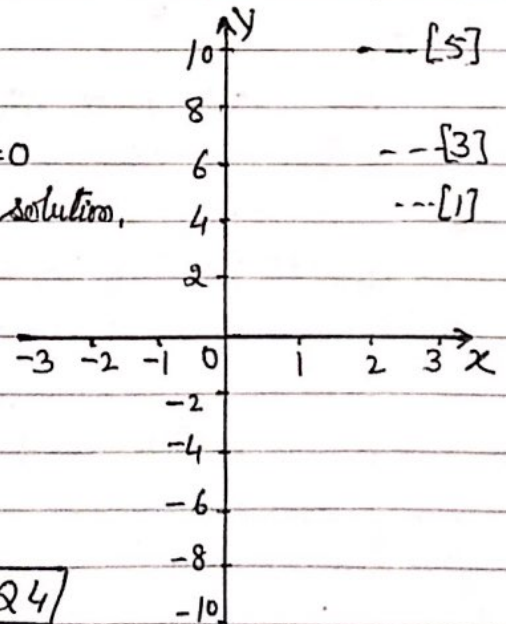 y
10 -- [5]
8
=0
6 -- [3]
solution,
4 --- [1]
2
-3 -2 -1 0 1 2 3 x
-2
-4
-6
-8
Q4
-10